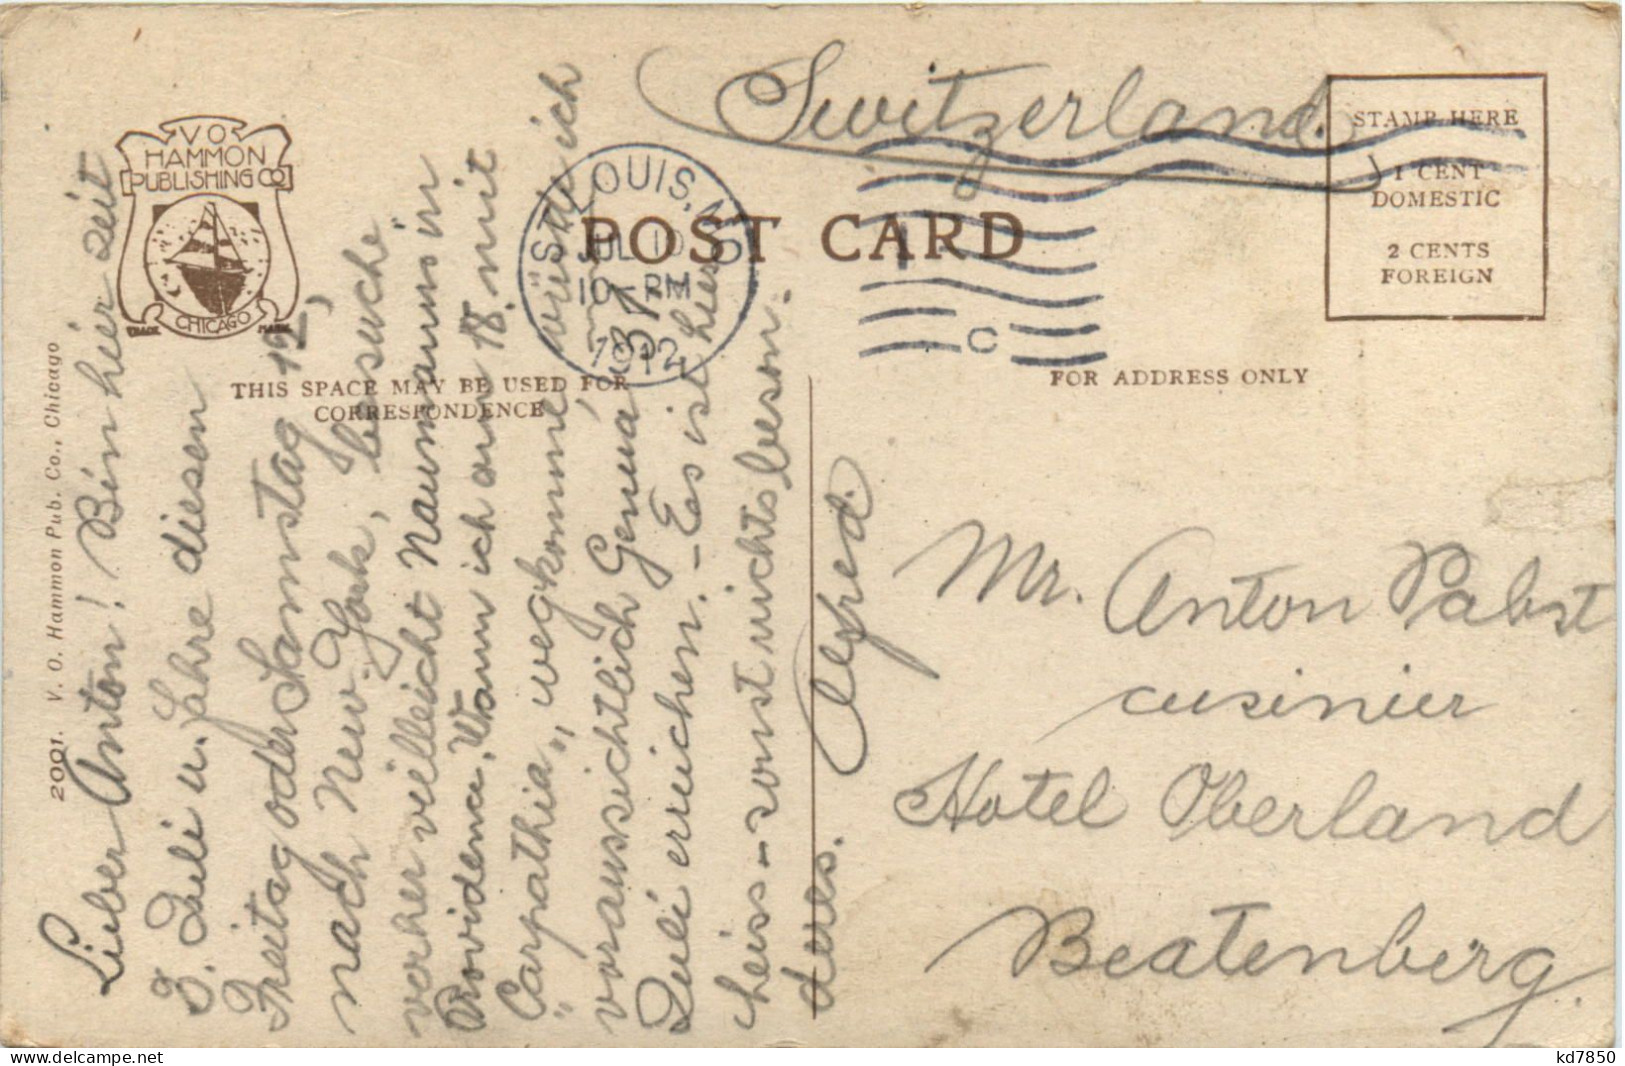 V O
HAMMON
PUBLISHING CO
CHICAGO
TRADE MARK
2001. V. O. Hammon Pub. Co., Chicago
THIS SPACE MAY BE USED FOR
CORRESPONDENCE
POST CARD
ST. LOUIS, MO
JUL 10
10-PM
1912
C
STAMP HERE
1 CENT
DOMESTIC
2 CENTS
FOREIGN
FOR ADDRESS ONLY
Switzerland.
Mr. Anton Pabst
cusinier
Hotel Oberland
Beatenberg.
Lieber Anton! Bin hier seit
Juli u. fahre diesen
Freitag oder Samstag 12,
nach New-York, besuche
vorher villeicht Naumann in
Providence. Wann ich am 18. mit
"Carpathia" wegkomme, würde ich
voraussichtlich Genua 31
Juli erreichen. - Es ist hier
heiss - sonst nichts beson-
deres. Alfred.
kd7850